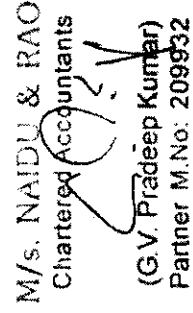 M/s. NAIDU & RAO
Chartered Accountants
(G.V. Pradeep Kumar)
Partner M.No: 209932